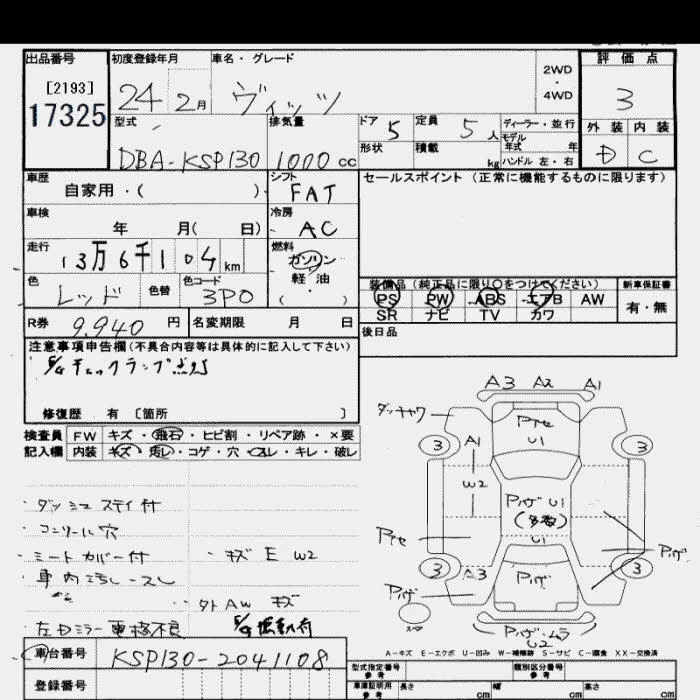 出品番号 初度登録年月 車名・グレード 2WD・4WD 評価点
[2193]
17325 24 2月 ヴィッツ 3
型式 排気量 ドア 5 定員 5人 ディーラー・並行 外装 内装
モデル年式 年
DBA-KSP130 1000cc 形状 積載 kg ハンドル 左・右 D C
車歴 シフト セールスポイント（正常に機能するものに限ります）
自家用・( ) FAT
車検 冷房
年 月( 日) AC
走行 燃料
13万6千104km ガソリン
軽油
色 色替 色コード ・ 装備品（純正品に限り○をつけてください） 新車保証書
レッド 3P0 ( ) PS PW ABS エアB AW 有・無
SR ナビ TV カワ
R券 9,940円 名変期限 月 日 後日品
注意事項申告欄（不具合内容等は具体的に記入して下さい）
チェックランプ点灯
修復歴 有 〔箇所 〕
検査員 FW キズ・飛石・ヒビ割・リペア跡・×要
記入欄 内装 キズ・汚レ・コゲ・穴・スレ・キレ・破レ
A3 A2 A1
ダッチャワ
Pテ
U1
3 A1 3
W2
Pハゲ U1
(多数)
U1
Pテ Pハゲ
3 A3 3
Pハゲ Pハゲ
スペア
Pハゲ・ムラ
U2
・ダッシュ ステイ付
・コンソール穴
・シートカバー付 ・キズ E W2
・車内汚レ・スレ
・外AW キズ
左右ミラー電格不良
車台番号 KSP130-2041108
A-キズ E-エクボ U-凹み W-補修跡 S-サビ C-腐食 XX-交換済
登録番号 型式指定番号 参考 類別区分番号 参考
車庫証明用 参考 長さ cm 幅 cm 高さ cm